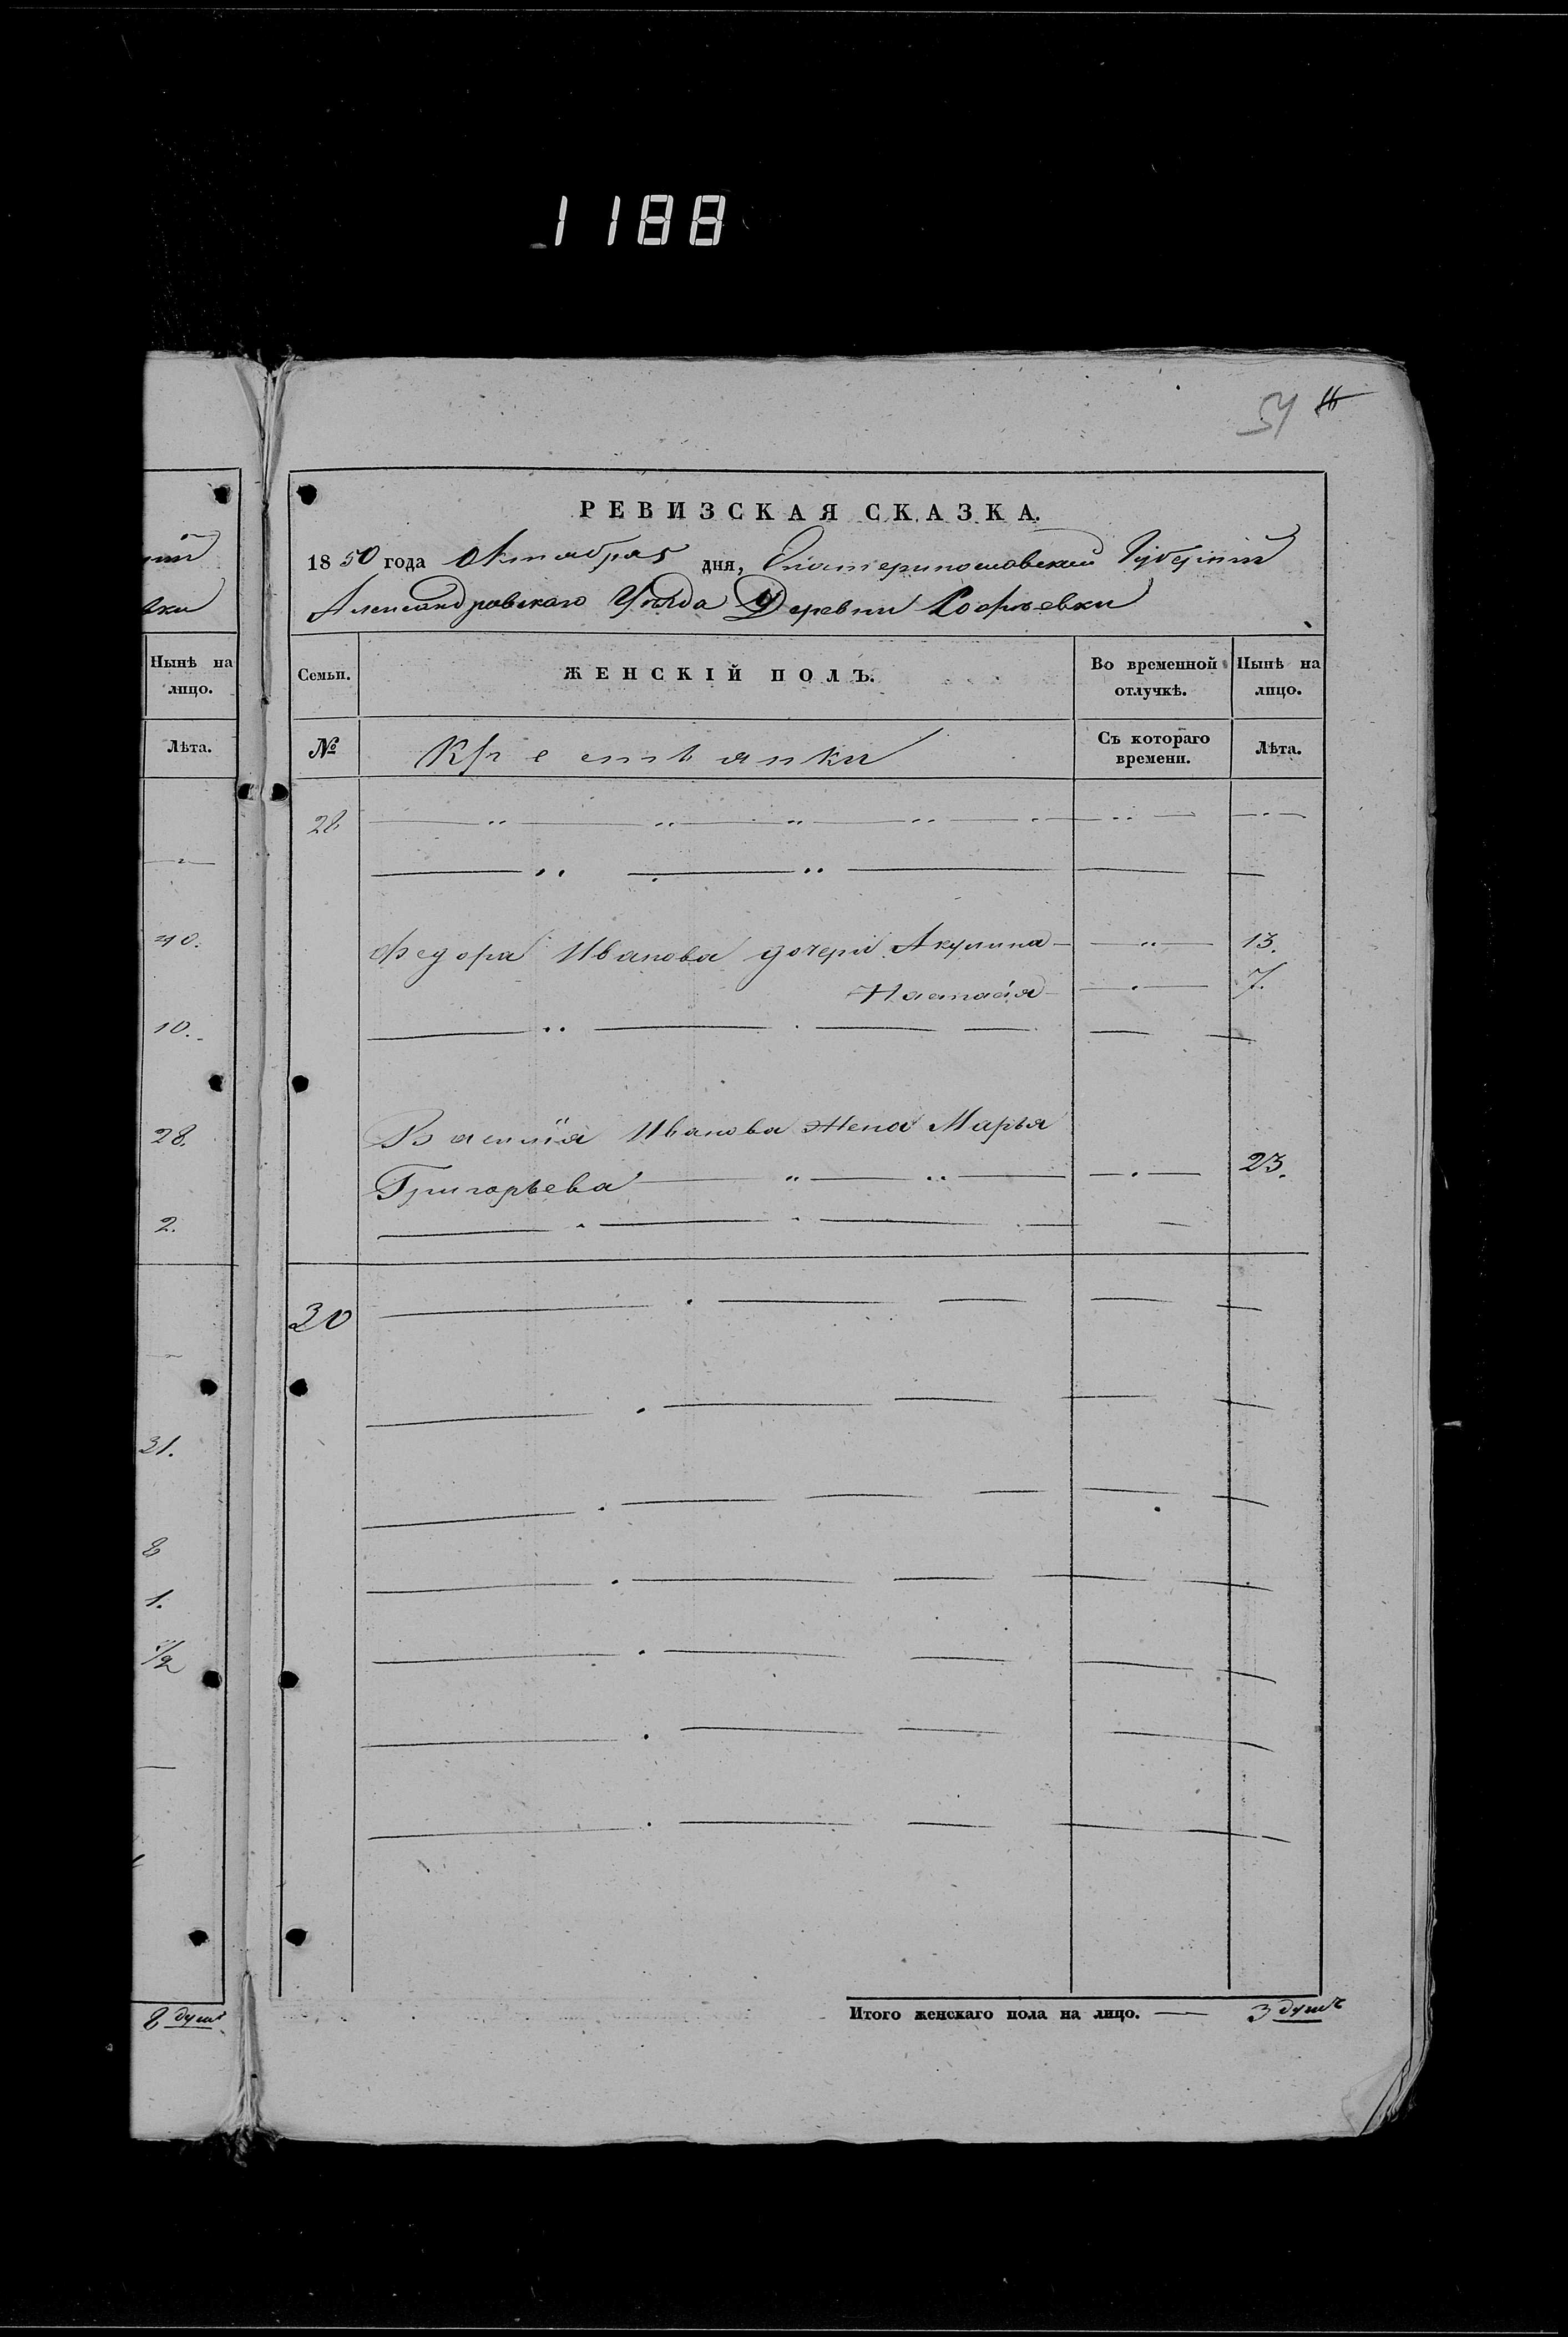 1188
54 16
РЕВИЗСКАЯ СКАЗКА.
1850 года Октября 5 дня, Екатеринославской Губерніи
Александровскаго Уѣзда Деревни Софіевки
Нынѣ на лицо.
Лѣта.
40.
10.
28.
2.
31.
8
1.
1/2
8 душъ
Семьи. ЖЕНСКІЙ ПОЛЪ. Во временной отлучкѣ. Нынѣ на лицо.
№ Крестьянки Съ котораго времени. Лѣта.
28
Федора Иванова дочери Акулина 13.
Настасія 7.
Василія Иванова жена Марья
Григорьева 23.
30
Итого женскаго пола на лицо. 3 душъ